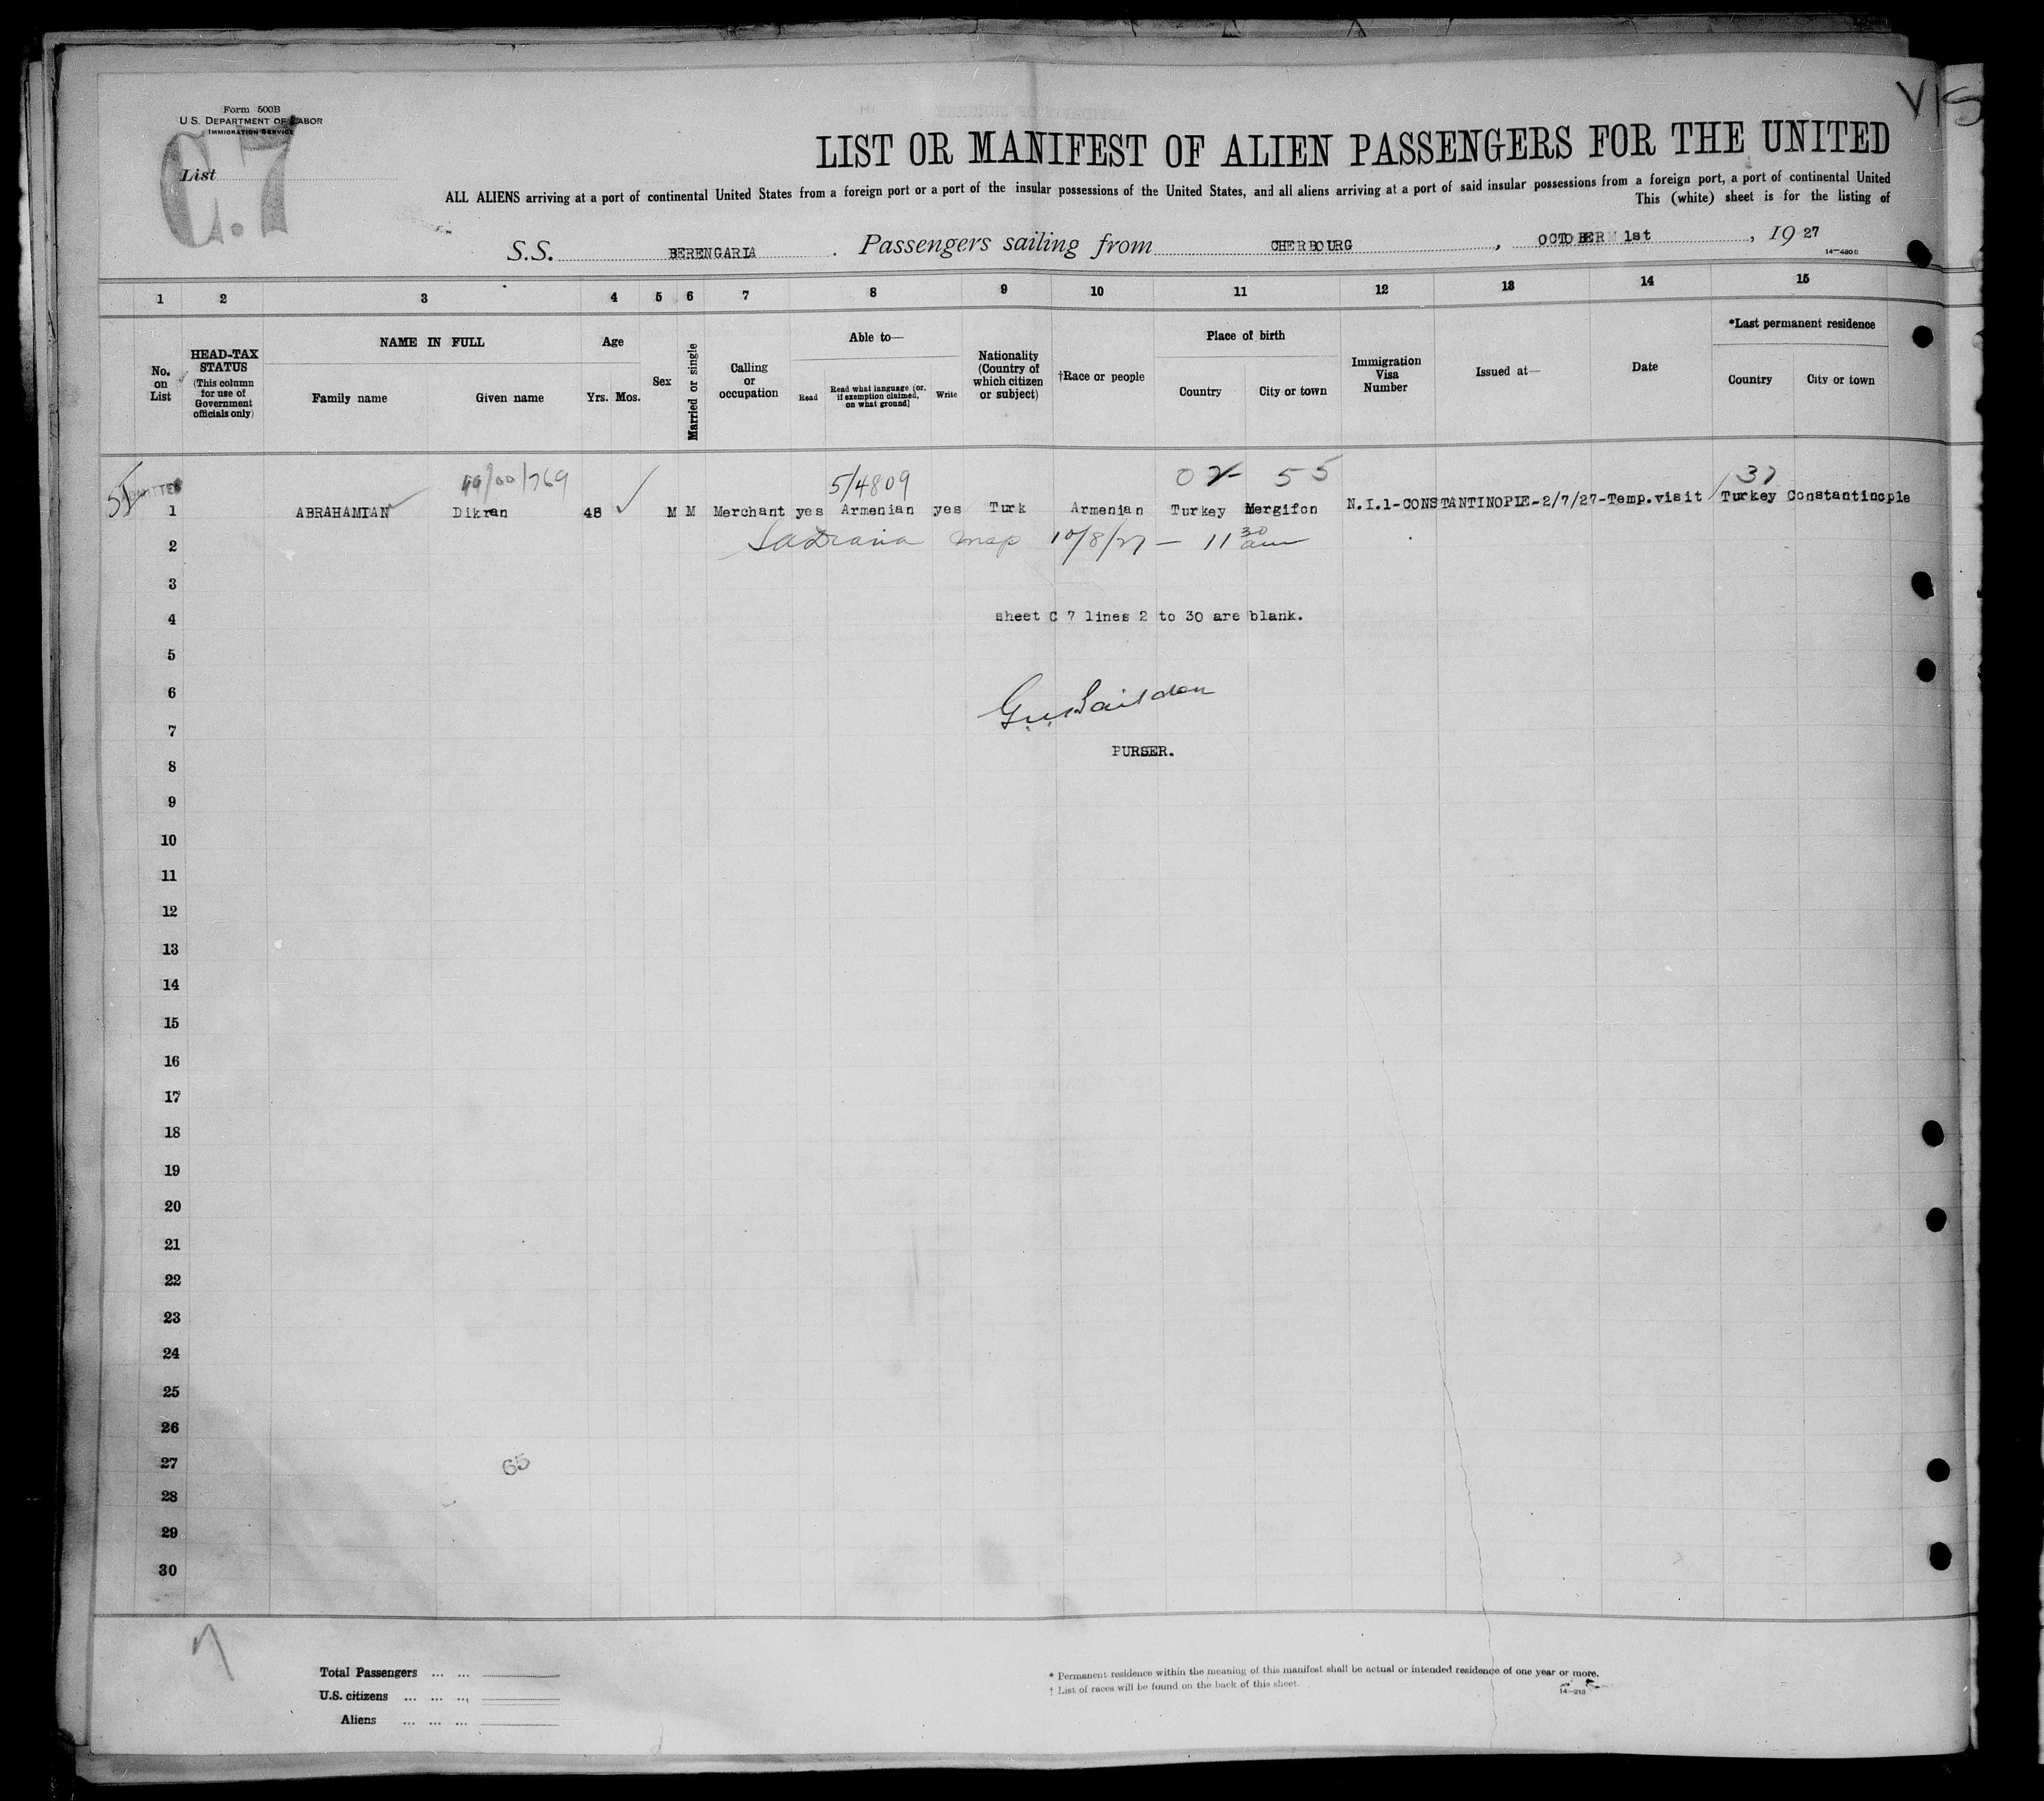 Form 500B
U.S. DEPARTMENT OF LABOR
IMMIGRATION SERVICE
C.7
List
VIS
LIST OR MANIFEST OF ALIEN PASSENGERS FOR THE UNITED
ALL ALIENS arriving at a port of continental United States from a foreign port or a port of the insular possessions of the United States, and all aliens arriving at a port of said insular possessions from a foreign port, a port of continental United
This (white) sheet is for the listing of
S.S. BERENGARIA. Passengers sailing from CHERBOURG, OCTOBER 1st, 1927
14—430 B
1 2 3 4 5 6 7 8 9 10 11 12 13 14 15
No. on List
HEAD-TAX STATUS (This column for use of Government officials only)
NAME IN FULL
Family name Given name
Age
Yrs. Mos.
Sex
Married or single
Calling or occupation
Able to—
Read Read what language [or, if exemption claimed, on what ground] Write
Nationality (Country of which citizen or subject)
†Race or people
Place of birth
Country City or town
Immigration Visa Number
Issued at—
Date
*Last permanent residence
Country City or town
ADMITTED 99/00/769 5/4809 02- 55 37
1 ABRAHAMIAN Dikran 48 M M Merchant yes Armenian yes Turk Armenian Turkey Mergifon N.I.1-CONSTANTINOPLE-2/7/27-Temp.visit Turkey Constantinople
2 10/8/27 — 11 30 am
3
4 sheet C 7 lines 2 to 30 are blank.
5
6
7
PURSER.
8
9
10
11
12
13
14
15
16
17
18
19
20
21
22
23
24
25
26
27 65
28
29
30
Total Passengers ... ...
U.S. citizens ... ... ...
Aliens ... ... ...
* Permanent residence within the meaning of this manifest shall be actual or intended residence of one year or more.
† List of races will be found on the back of this sheet.
14—213